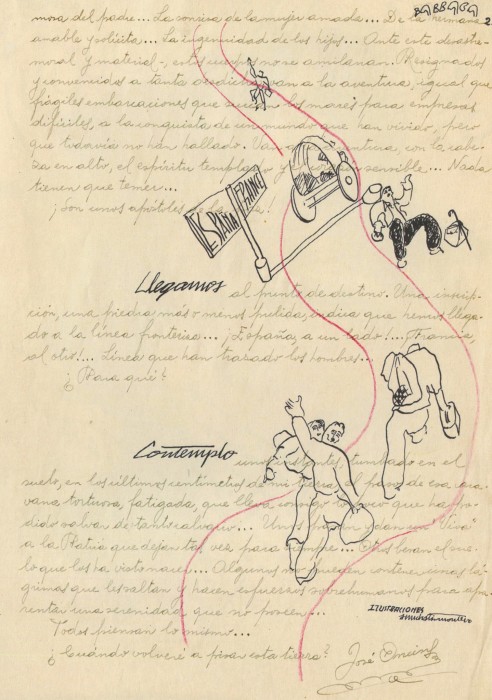 2
mosa del padre... La sonrisa de la mujer amada... De la hermana
amable y solícita... La ingenuidad de los hijos... Ante este desastre
moral y material-, estos cuerpos no se amilanan. Resignados
y convencidos a tanta desdicha van a la aventura, igual que
frágiles embarcaciones que surcan los mares para empresas
difíciles, a la conquista de un mundo que han vivido, pero
que todavía no han hallado. Van a la aventura, con la cabe-
za en alto, el espíritu templado y sensible... Nada
tienen que temer...
¡Son unos apóstoles de la !
ESPAÑA FRANC
Llegamos al punto de destino. Una inscrip-
ción, una piedra más o menos pulida, indica que hemos llega-
do a la línea fronteriza... ¡España, a un lado!... Francia,
al otro!... Línea que han trazado los hombres...
¿Para qué?
Contemplo unos instantes, tumbado en el
suelo, en los últimos centímetros de mi tierra, el paso de esa cara-
vana tortuosa, fatigada, que lleva consigo lo poco que ha po-
dido salvar de tanto calvario... Unos dan un "Viva"
a la Patria que dejan tal vez para siempre... Otros besan el sue-
lo que los ha visto nacer... Algunos no pueden contener unas lá-
grimas que les saltan y hacen esfuerzos sobrehumanos para apa-
rentar una serenidad que no poseen...
Todos piensan lo mismo...
¿Cuándo volveré a pisar esta tierra? José
ILUSTRACIONES